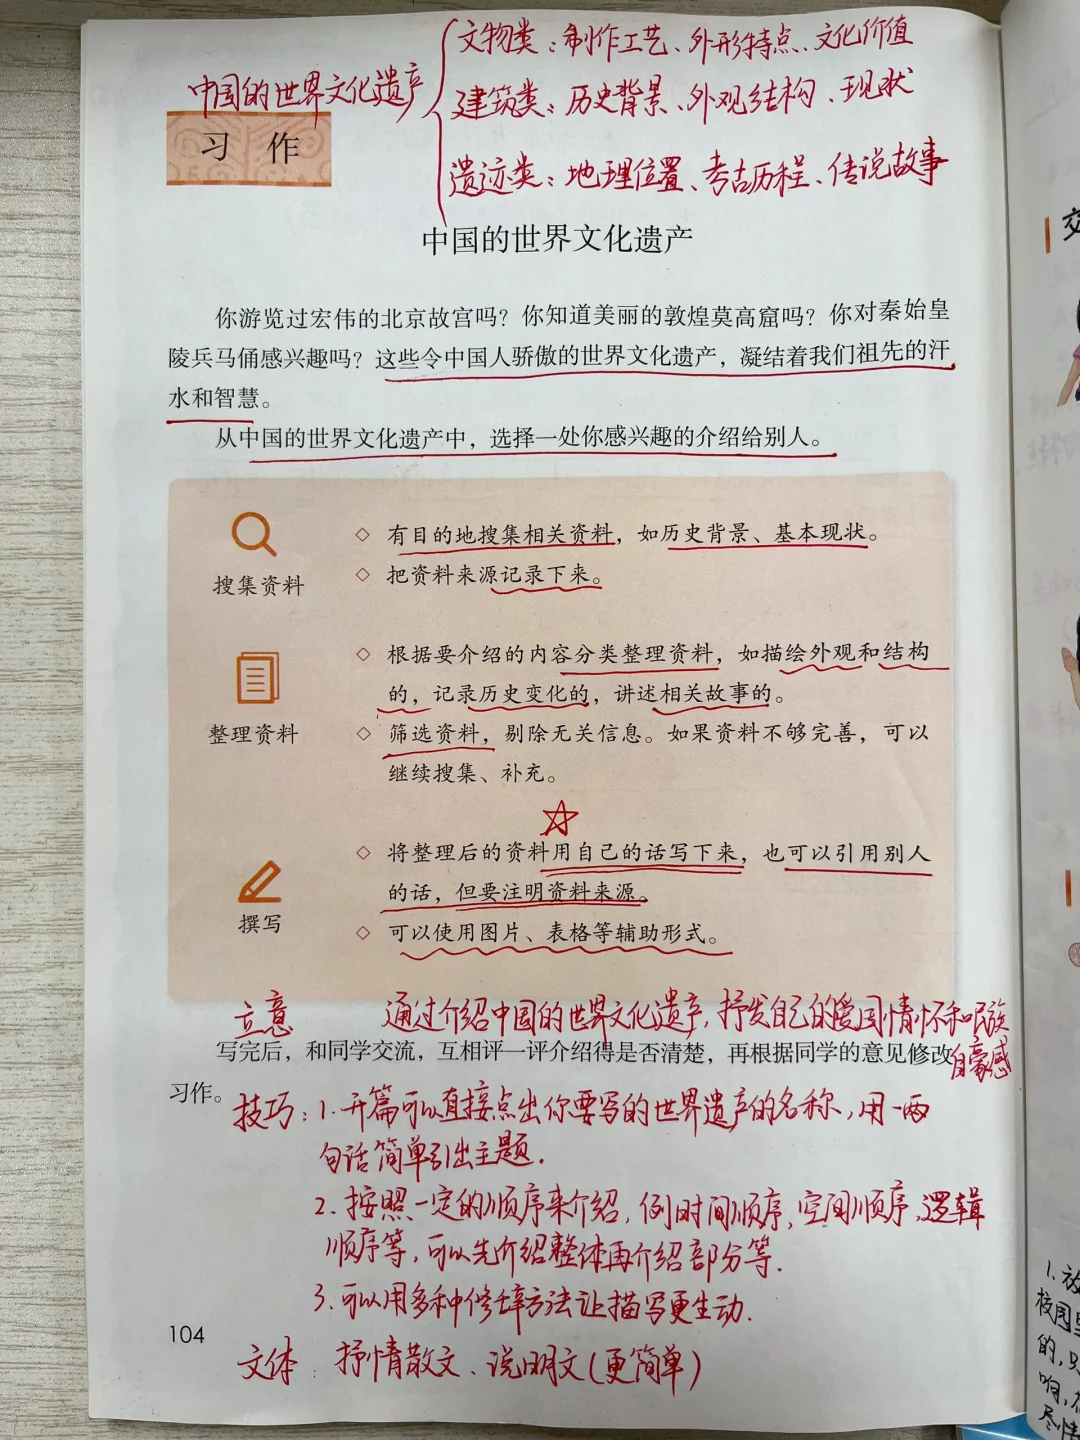 文物类：制作工艺、外形特点、文化价值
中国的世界文化遗产
建筑类：历史背景、外观结构、现状
习 作
遗迹类：地理位置、考古历程、传说故事
中国的世界文化遗产
你游览过宏伟的北京故宫吗？你知道美丽的敦煌莫高窟吗？你对秦始皇
陵兵马俑感兴趣吗？这些令中国人骄傲的世界文化遗产，凝结着我们祖先的汗
水和智慧。
从中国的世界文化遗产中，选择一处你感兴趣的介绍给别人。
搜集资料
◇ 有目的地搜集相关资料，如历史背景、基本现状。
◇ 把资料来源记录下来。
整理资料
◇ 根据要介绍的内容分类整理资料，如描绘外观和结构
的，记录历史变化的，讲述相关故事的。
◇ 筛选资料，剔除无关信息。如果资料不够完善，可以
继续搜集、补充。
撰写
◇ 将整理后的资料用自己的话写下来，也可以引用别人
的话，但要注明资料来源。
◇ 可以使用图片、表格等辅助形式。
立意 通过介绍中国的世界文化遗产，抒发自己的爱国情怀和民族
自豪感
写完后，和同学交流，互相评一评介绍得是否清楚，再根据同学的意见修改
习作。
技巧：1. 开篇可以直接点出你要写的世界遗产的名称，用一两
句话简单引出主题.
2. 按照一定的顺序来介绍，例时间顺序，空间顺序，逻辑
顺序等，可以先介绍整体再介绍部分等.
3. 可以用多种修辞方法让描写更生动.
104
文体：抒情散文、说明文（更简单）
交
1. 放
校园里
的，只
响，
尽情